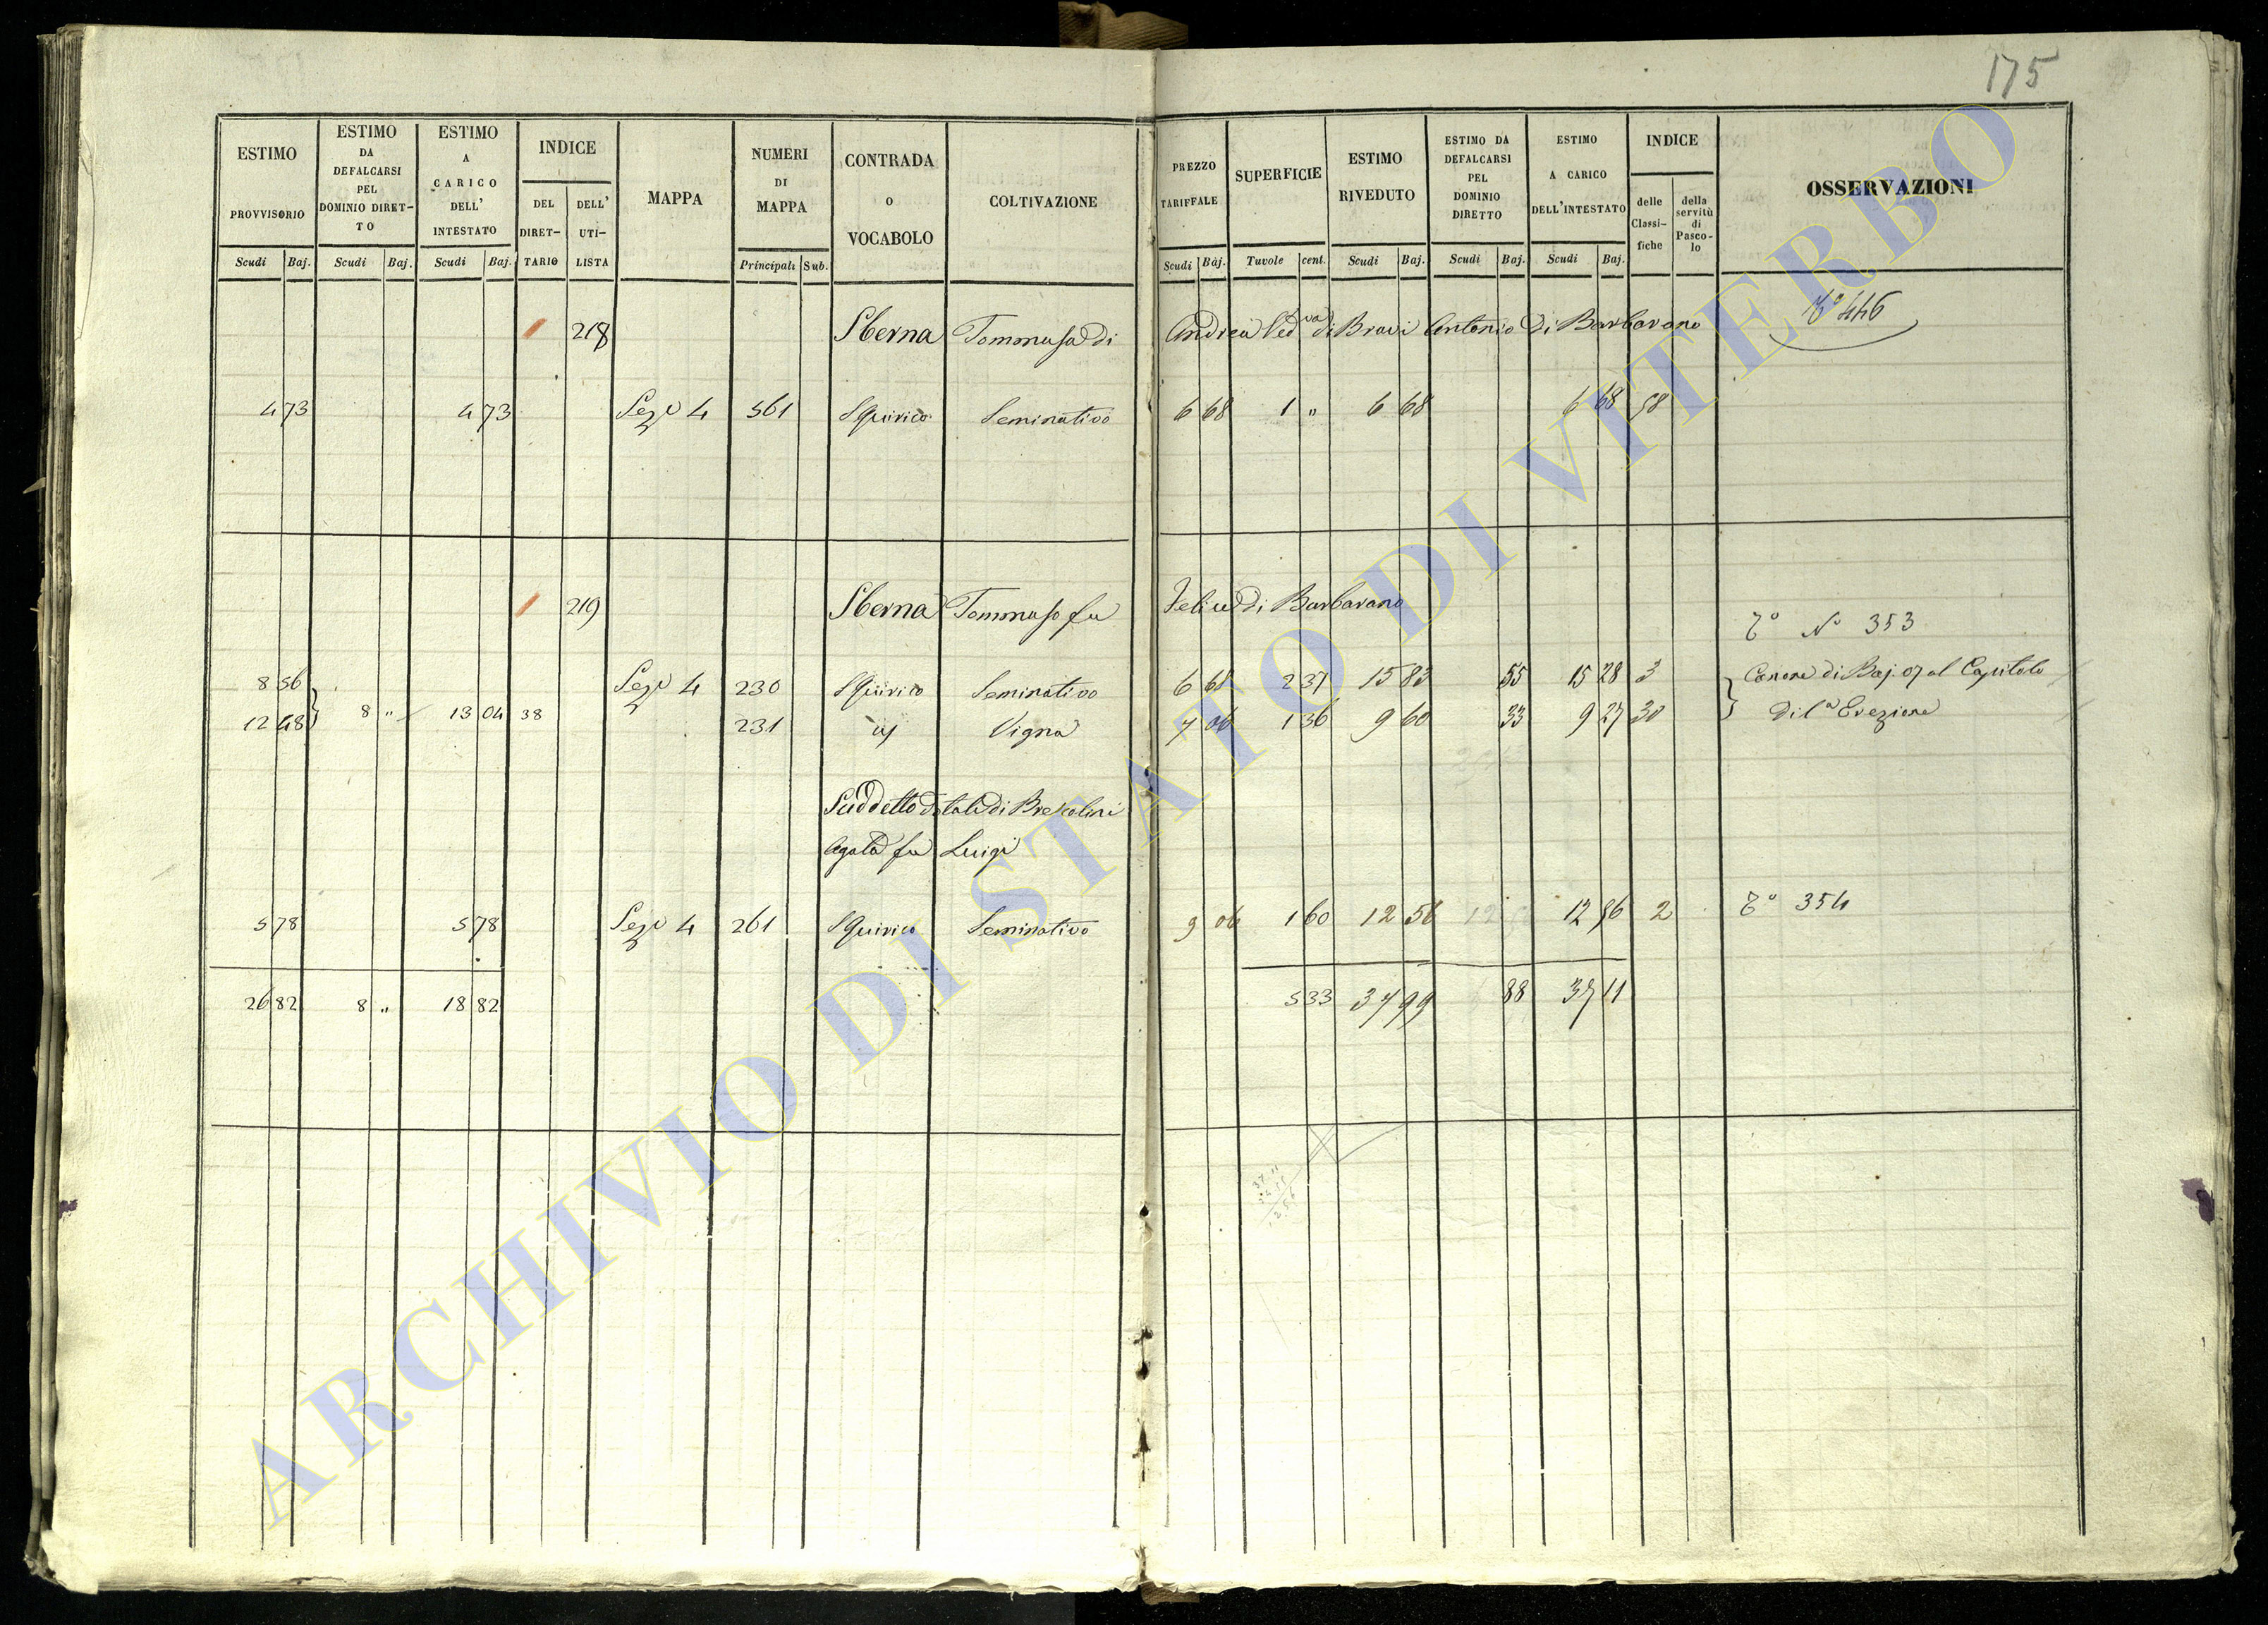 175
ESTIMO PROVVISORIO
ESTIMO DA DEFALCARSI PEL DOMINIO DIRETTO
ESTIMO A CARICO DELL' INTESTATO
INDICE
DEL DIRETTARIO
DELL' UTILISTA
MAPPA
NUMERI DI MAPPA
CONTRADA O VOCABOLO
COLTIVAZIONE
PREZZO TARIFFALE
SUPERFICIE
ESTIMO RIVEDUTO
ESTIMO DA DEFALCARSI PEL DOMINIO DIRETTO
ESTIMO A CARICO DELL'INTESTATO
INDICE
delle Classifiche
della servitù di Pascolo
OSSERVAZIONI
Scudi Baj. Scudi Baj. Scudi Baj. Principali Sub. Scudi Baj. Tavole cent. Scudi Baj. Scudi Baj. Scudi Baj.
218 Sberna Tommasa di Andrea Ved.va di Bravi Antonio di Barbarano T° 446
4 73 4 73 Sez.e 4 561 S Quirico Seminativo 6 68 1 " 6 68 6 68 58
219 Sberna Tommaso fu Felice di Barbarano
T° N° 353
8 56 Sez.e 4 230 S Quirico Seminativo 6 68 2 37 15 83 55 15 28 3 Canone di Baj. 07 al Capitolo
12 48 8 " 13 04 38 231 id Vigna 7 06 1 36 9 60 33 9 27 30 di 1a Erezione
Suddetto Dotale di Brescolini
Agata fu Luigi
5 78 5 78 Sez.e 4 261 S Quirico Seminativo 9 06 1 60 12 56 12 56 2 T° 354
26 82 8 " 18 82 5 33 37 99 88 37 11
ARCHIVIO DI STATO DI VITERBO